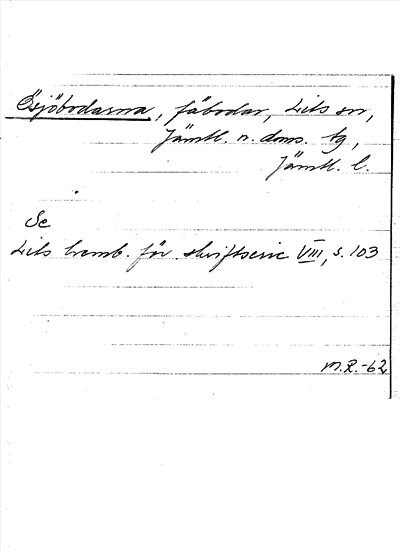 Ösjöbodarna, fäbodar, Lits sn,
Jämtl. n. doms. tg,
Jämtl. l.
Se
Lits hemb. för. skriftserie VIII, s. 103
M.R.-62